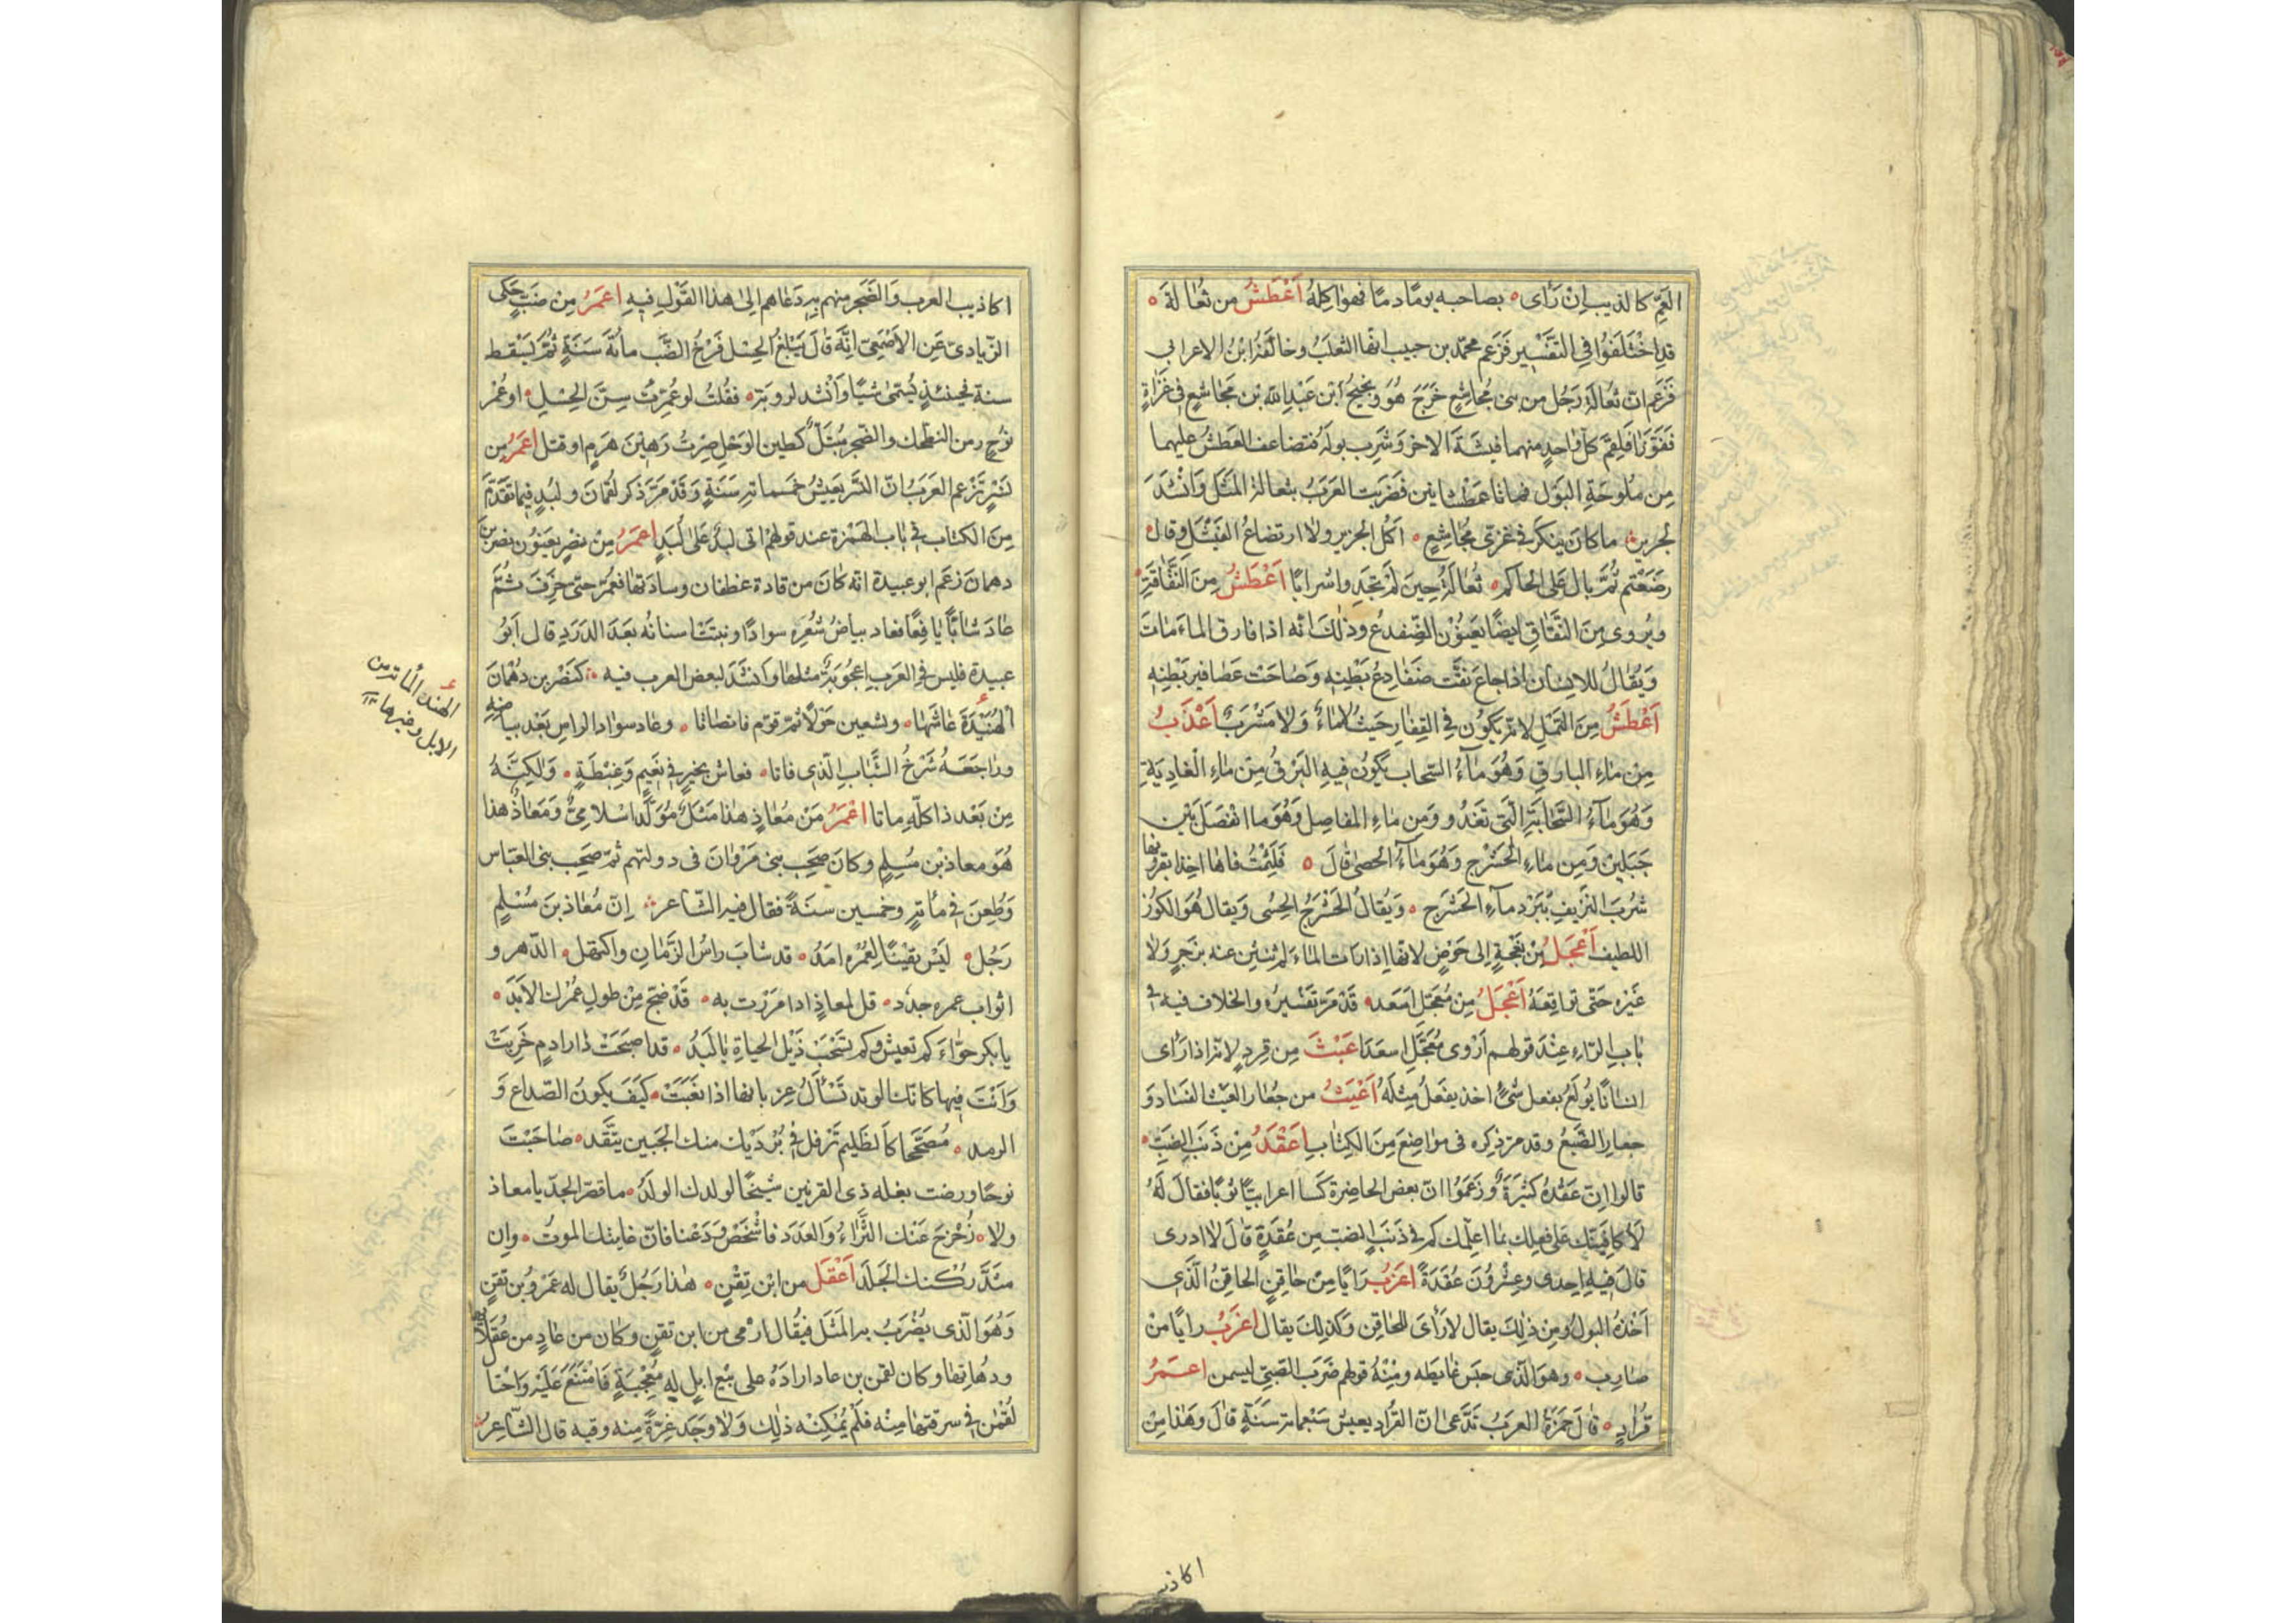 العَمِّ كالذيب اِنْ رَأى ٥ بصاحبه يومًا دمًا فهو اٰكِلُهُ اَعْطَشُ من ثُعَالَةَ ٥
قدِ اخْتَلَفُوا فِي التَّفْسِيرِ فَزَعم محمّد بن حبيب انّها الثعلَبُ وخالَفَهُ ابْنُ الاعرابي
فَزَعم انّ ثُعَالَةَ رَجُل من بنى مُجاشِعٍ خَرَجَ هُوَ ونَجِيحُ ابْن عَبْدِ اللّه بْن مَجَاشعٍ فى غَزَاةٍ
فَفَوَّزَا فَلَقِمَ كلّ وٰاحِدٍ منهما فَيْشَةَ الاٰخر وَشَرِب بولَهُ فتضاعف العَطَشُ عليهما
مِن مُلُوحَةِ البَوْل فماتا عَطْشانين فَضَرَبت العَرَبُ بثعالة المَثَلَ وَاَنْشَدَ
لجرير ما كانَ ينكَر فى غزى مُجَاشِعٍ ٥ اَكْل الخزير ولا ارتضاعُ الفَيْشَل وقال
رَضَعْتم ثُمَّ بال عَلى لحاكم ٥ ثُعالَةُ حِينَ لَمْ تَجِدِ واشرابًا اَعْطَشُ مِنَ النَّقَّاقَةِ ٥
ويُروى مِنَ النَّقَّاقِ ايضًا يَعنُوْن الضّفدع وذٰلكَ انّه اذا فارق الماءَ مَاتَ
وَيُقالُ للاِنسَان اذا جاعَ نَقَّت ضَفَادِعُ بَطْنِه وَصَاحَتْ عَصَافير بَطْنِه
اَعْطَشُ مِنَ النَّمْلِ لانّه يَكُون فِي القِفَارِ حَيْثُ لا مَاءَ وَلا مَشْرَبَ اَعْذَبُ
مِن مَاءِ البارِقِ وَهُوَ مَاءُ السّحاب يَكُونُ فيهِ البَرْقُ مِنْ مَاءِ الغادِيَةِ
وَهُوَ مَاءُ السَّحَابَةِ الَّتى تَغْدُو وَمِن مَاءِ المفاصِلِ وَهُوَ ما انْفَصَلَ بَيْن
جَبَلين وَمِن مَاءِ الحَشْرَجِ وَهُوَ مَاءُ الحصىٰ قالَ ٥ فَلَثِمْتُ فاهَا اخِذًا بقرونها
شُرْبَ النَّزِيفِ بِبَرْدِ مآءِ الحَشْرَج ٥ وَيُقالُ الحَشْرَجُ الحِسى وَيقال هُوَ الكوُز
اللطيف اَعْجَلُ مِنْ نَعْجَةٍ اِلى حَوْضٍ لانّها اِذا رَات الماءَ لم تنثنِ عنه بزجرٍ ولا
غَيْره حَتّى تواقِعَهُ اَعْجَلُ مِن مُعَجِّل اَسعَد ٥ قَدْ مَرّ تَفْسيرُه والخلاف فيه فى
بابِ الرّاءِ عِنْدَ قولهم اَرْوى مُعَجِّلِ اسعَدَ اعبَثُ مِن قِردٍ لانّه اذا رَاى
انسانًا يُولَعُ بفعل شَىْءٍ اخذ يفعَلُ مِثلَهُ اَعْيَثُ من جُعَار العيث الفسَاد وَ
جعار الضَّبُعُ وقد مرّ ذِكره فى مواضِعَ مِنَ الكِتابِ اَعْقَدُ مِنْ ذَنَب الضَبِّ ٥
قالوا اِنّ عَقْدَهُ كثيرَةٌ وزَعَمُوا انّ بعض الحاضِرة كَسا اعرابيًّا ثوبًا فقال لَهُ
لَاُكافِئنّك عَلى فعلِك بمَا اعلّمك كم فى ذَنَب الضب مِن عُقَدَةٍ قالَ لا ادرى
قالَ فيهِ اِحدى وعِشرُونَ عُقدَةً اعزَبُ رَايًا مِنْ حَاقِنٍ الحاقِنُ الَّذى
اَخَذهُ البولُ ومِن ذٰلِكَ يقال لا رَاْىَ للحاقِن وَكذٰلِكَ يقال اعزَبُ رايًا مِنْ
صَارِبٍ ٥ وهو الّذى حبَسَ غايطه ومِنْهُ قولهم ضَرَب الصّبىّ ليسمن اعمَرُ
قُرَادٍ ٥ قٰالَ حَمْزَةُ العرَبُ تَدَّعى انّ القُرادَ يعيش سَبْعمائة سَنَةٍ قالَ وَهٰذا مِنْ
اكاذيب
اكاذيب العرب وَالضَجَر منهم به دَعَاهم اِلىٰ هذا القَوْلِ فيهِ اعمَرُ مِن ضَبٍّ حَكى
الزّيادىّ عَنِ الاَصْمَعِىّ انّهَ قٰالَ يَبْلغ الحِسْل فَرْخُ الضَّب مائة سَنَةٍ ثمَّ يَسْقط
سنة فحينئذٍ يُسَمّى ضبًّا وَاَنْشَد لروبَةَ ٥ فقُلتُ لو عُمِّرْتُ سِنَّ الحِسْلِ ٥ او عُمْرَ
نوُحٍ زمن الفِطَحْل والصّخر مُبتَلٌّ كطين الوَحْلِ صِرْتُ رَهِيْنَ هَرَمٍ او قتل اعمَرُ مِن
نَسْرٍ تَزْعم العَرَبُ انّ النّسْرَ يعيشُ خمسمائة سَنَةٍ وَقَدْ مَرّ ذكر لُقمانَ ولُبَدٍ فيما تقَدّمَ
مِنَ الكتاب فى بَاب الهَمْزة عند قولهم اتى لُبَدٌ عَلىٰ لُبَدٍ اعمَرُ مِنْ نَصْرٍ يعنُون نَصْرَ بْنَ
دهمان زعَم ابو عبيدة انّه كانَ من قادة غطفان وسادتها فعُمّر حتىّ خرِفَ ثُمَّ
عادَ شابًّا يَافِعًا فعاد بياضُ شَعْرِه سوادًا ونبتَتْ اسنانُه بعَدَ الدَرَدِ قال اَبُو
عبيدة فليس فى العَرَب اعجُوبَةٌ مثلها وانْشَدَ لبعض العرب فيه ٥ كنَصْر بن دُهْمَانَ
الهُنَيْدَةَ عَاشَهَا ٥ وتسعين حَوْلًا ثمّ قوّم فانصَاتا ٥ وعاد سواد الراس بَعْد بياضهِ
وراجَعَهُ شَرْخُ الشَّبابِ الّذى فاتا ٥ فعاش بخيرٍ فى نَعِيمٍ وَغِبْطَةٍ ٥ وَلكِنّهُ
مِنْ بَعْد ذا كلّهِ ماتا اعْمَرُ مَنْ مُعَاذٍ هٰذا مَثَلٌ مُوَلَّدٌ اسْلامِىٌّ وَمَعَاذٌ هذا
هُوَ معاذ بْن مُسْلِمٍ وكان صَحِبَ بنى مَرْوَانَ فى دولتهم ثمّ صَحِبَ بنى العبّاس
وَطعِنَ فى مأئةٍ وخمسين سنَةً فقال فيه الشّاعر اِنّ مُعاذ بنَ مُسْلِمٍ
رَجُل ٥ لَيْسَ يقينًا لِعُمْرِه امَدُ ٥ قد شابَ راسُ الزَّمَانِ واكتهل ٥ الدّهر و
اثواب عمره جدُد ٥ قل لمعاذٍ اذا مرَرْت به ٥ قَدْ ضجّ مِنْ طولِ عُمْرِك الاَبَدَ ٥
يا بكر حوّاءَ كم تعيش وكم تسْحَبُ ذَيْل الحياةِ يا لُبَدُ ٥ قد اصبَحَتْ دار ادمٍ خَرِبَتْ
وَاَنْتَ فيها كانّك الوتد تَسْأَلُ غِربانها اذا نعَبَتْ ٥ كَيْفَ يكونُ الصّداع وَ
الرمد ٥ مُصَحّحًا كالظليم تَرْفل فى بُرْدَيْكَ منك الجَبين يَتَّقد ٥ صَاحَبْتَ
نوحًا ورضت بغله ذى القرنين شيخًا لولدك الولَدُ ٥ ما قصّر الجدّ يا معاذ
ولا ٥ زُحْزِحَ عَنْك الثَّراءُ وَالعَدَد فاشْخَصْ ودَعْنا فانّ غايتك الموتُ ٥ واِن
شَدَّ رُكْنك الجَلَد اَعْقَل من ابن تِقْنٍ ٥ هٰذا رَجُلٌ يقال له عَمْرُو بْن تقنٍ
وَهُوَ الّذى يُضْرَبُ به المثَل فيُقال ارْمى من ابن تقنٍ وكان من عادٍ من عُقَلائها
ودُهاتِها وكان لقمن بن عاد ارادَهُ على بَيْع ابِلٍ لهِ مُعْجِبَةٍ فَامْتَنَعَ عَلَيْه وَاحْتا
لُقْمٰن فى سرقتها مِنْه فلَم يُمْكِنْه ذٰلِكَ وَلا وَجَدَ غِرّةً مِنه وفيه قال الشّاعِرُ
الهند المائة من
الابل وغيرها ١٢